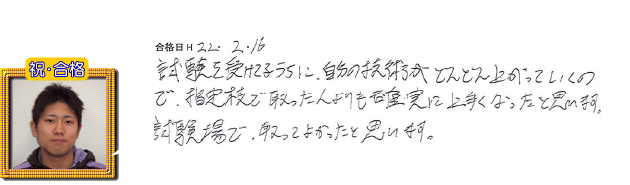 祝・合格
合格日 H 22. 2.16
試験を受けてるうちに、自分の技術がどんどん上がっていくの
で、指定校で取った人よりも確実に上手くなったと思います。
試験場で、取ってよかったと思います。